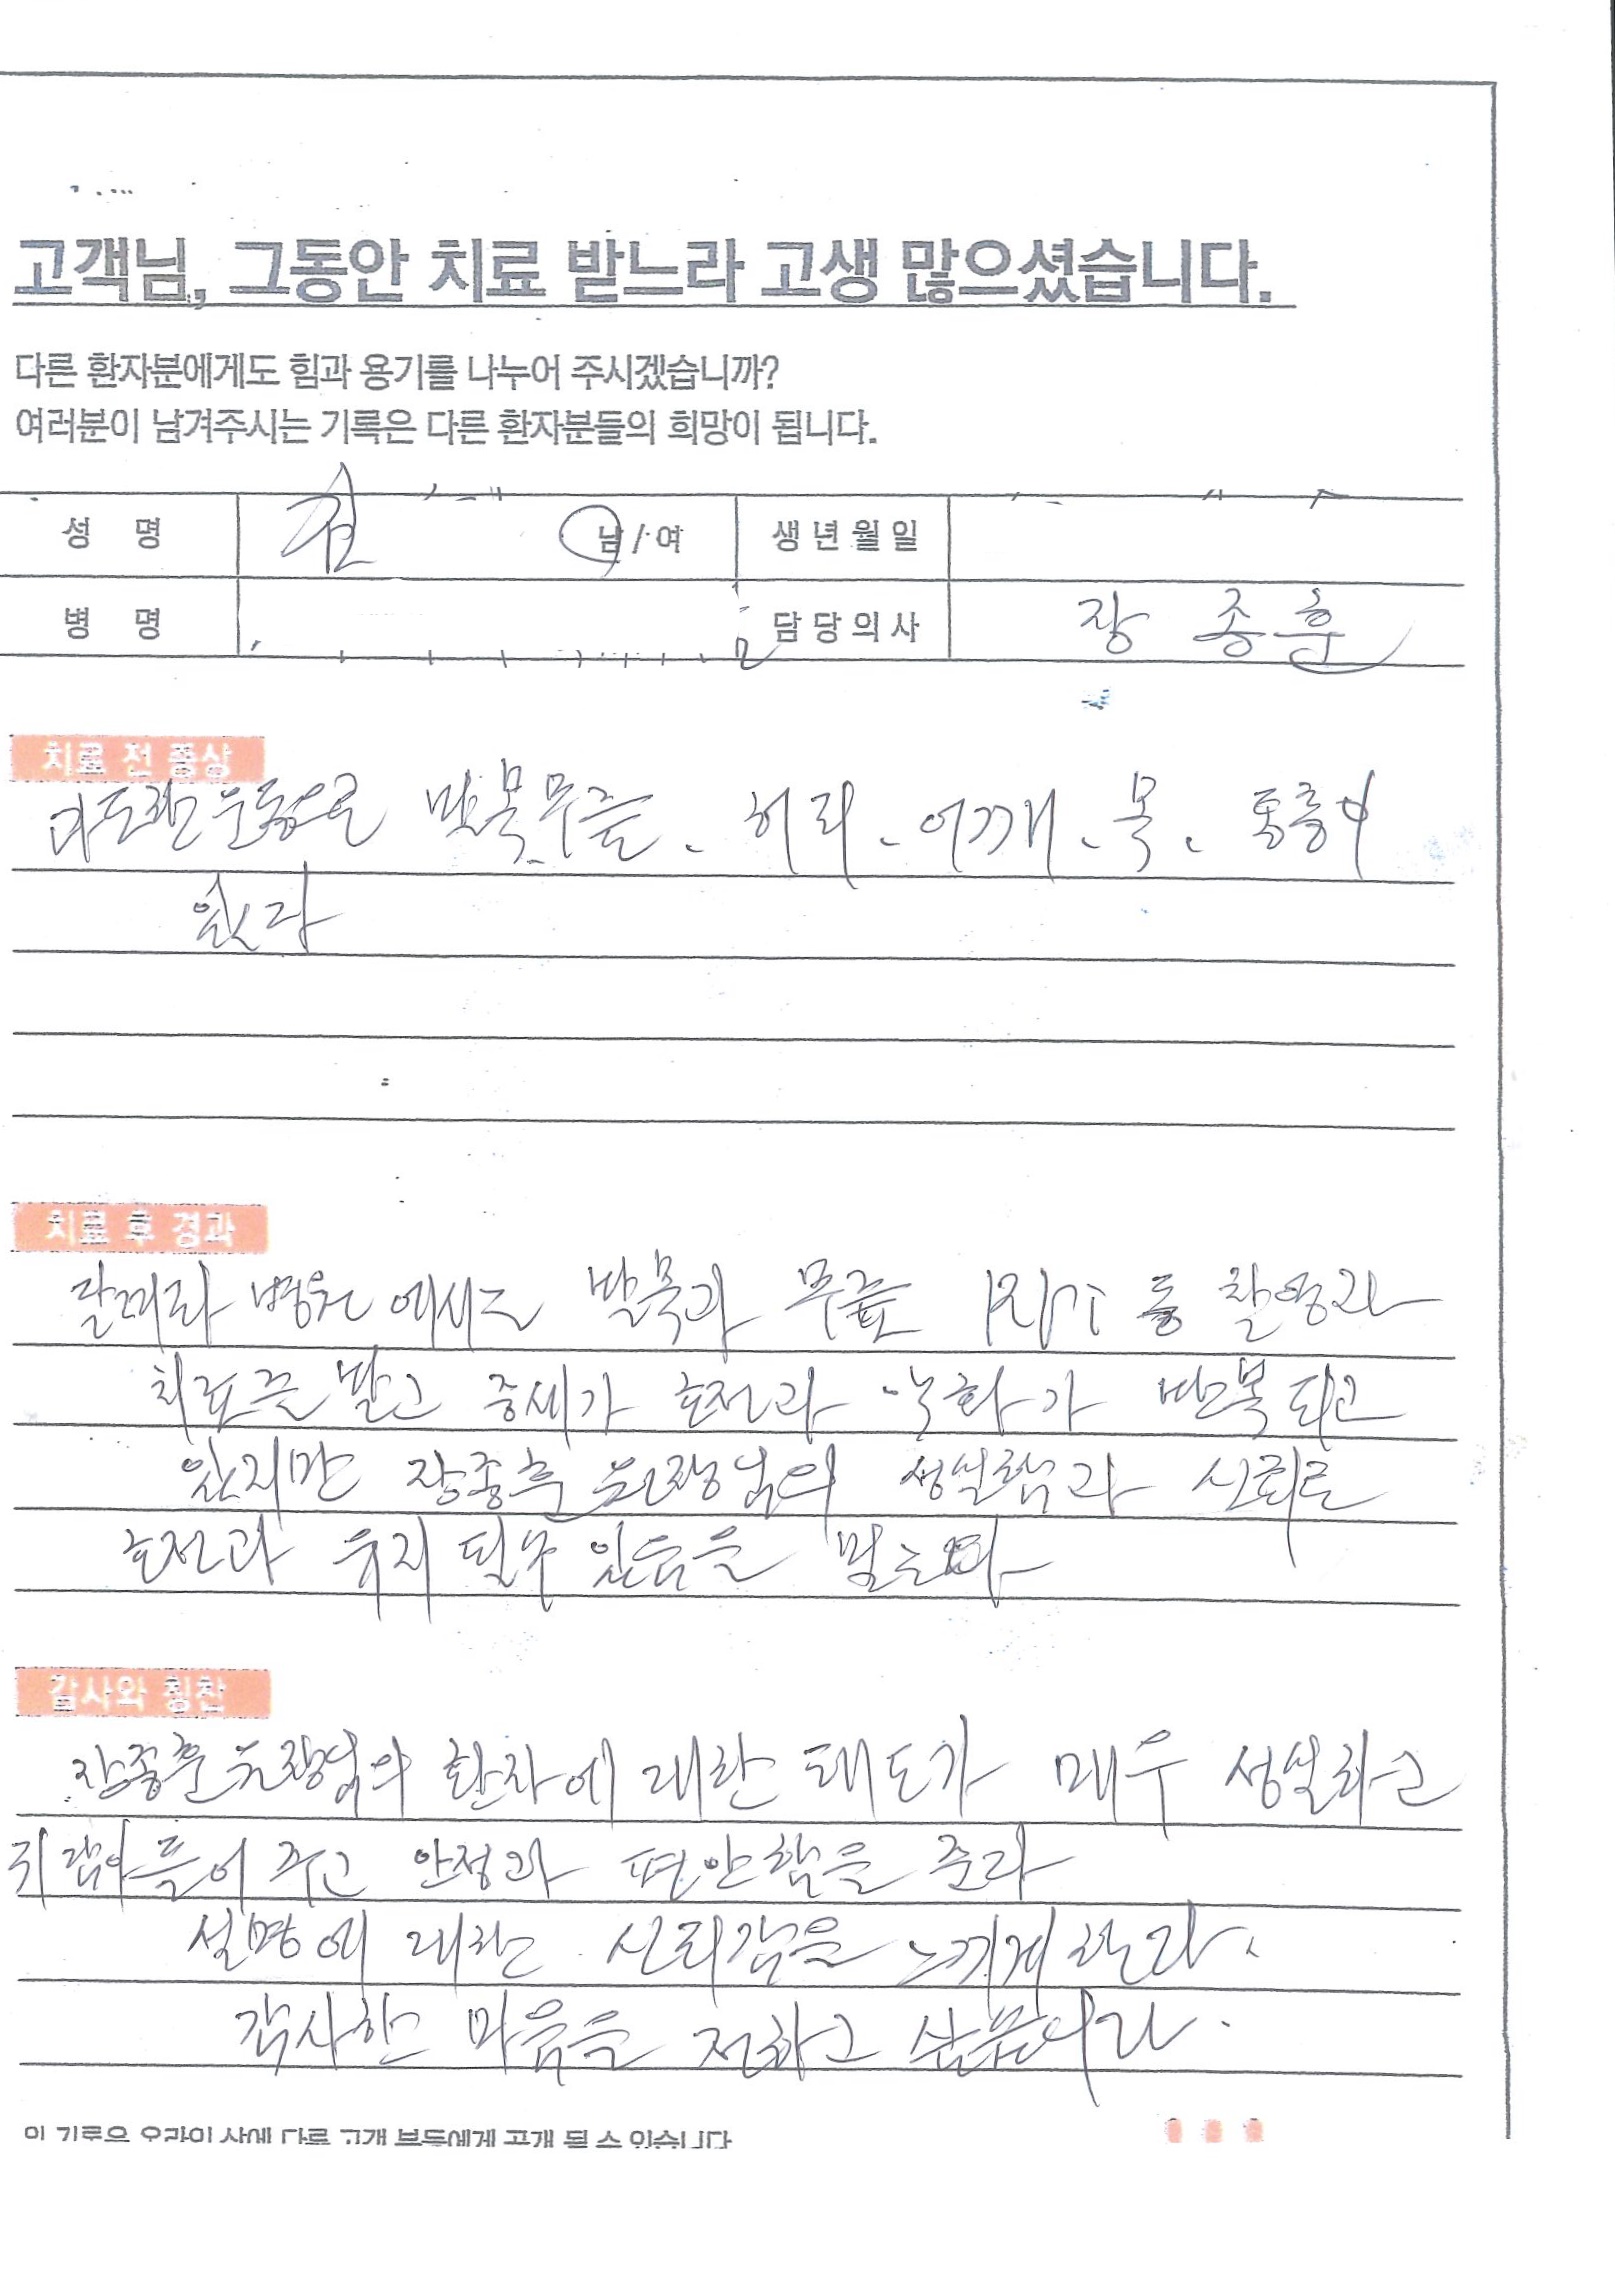 고객님, 그동안 치료 받느라 고생 많으셨습니다.
다른 환자분에게도 힘과 용기를 나누어 주시겠습니까?
여러분이 남겨주시는 기록은 다른 환자분들의 희망이 됩니다.
성 명 남/여 생년월일
병 명 담당의사 장종훈
치료 전 증상
과도한 운동으로 발목 무릎、허리、어깨、목、통증이
있다
치료 후 경과
달려라 병원에서 발목과 무릎 MRI 등 촬영과
치료를 받고 증세가 호전과 악화가 반복되고
있지만 장종훈 원장님의 성실함과 신뢰로
호전과 유지 될 수 있음을 믿는다
감사와 칭찬
장종훈 원장님의 환자에 대한 태도가 매우 성실하고
귀 담아 들어 주고 안정과 편안함을 준다
설명에 대한 신뢰감을 느끼게 한다.
감사한 마음을 전하고 싶다.